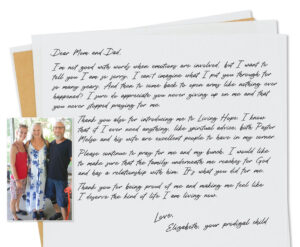 Dear Mom and Dad,
I'm not good with words when emotions are involved, but I want to
tell you I am so sorry. I can't imagine what I put you through for
so many years. And then to come back to open arms like nothing ever
happened? I sure do appreciate you never giving up on me and that
you never stopped praying for me.
Thank you also for introducing me to Living Hope. I know
that if I ever need anything, like spiritual advice, both Pastor
and his wife are excellent people to have in my corner.
Please continue to pray for me and my bunch. I would like
to make sure that the family underneath me reaches for God
and has a relationship with him. It's what you did for me.
Thank you for being proud of me and making me feel like
I deserve the kind of life I am living now.
Love,
Elizabeth, your prodigal child